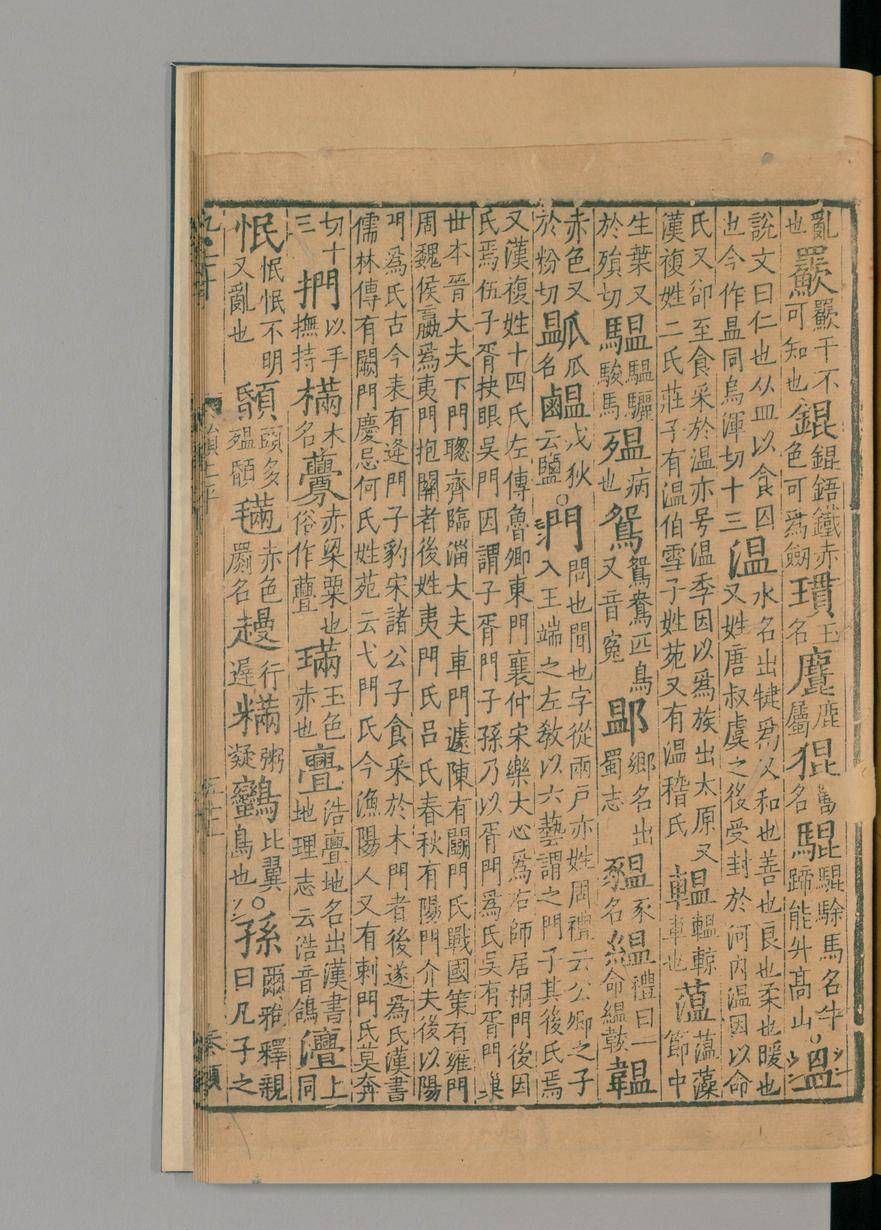 亂也 𦌾 𦌾干不可知也 錕 錕鋙鐵赤色可爲劒 瑻 玉名 鹿屬 猑 獸名 騉 騉駼馬名牛蹄能升高山 。𥁕
說文曰仁也从皿以食囚也今作昷同烏渾切十三 温 水名出犍爲又和也善也良也柔也暖也又姓唐叔虞之後受封於河内温因以命
氏又郤至食采於温亦号温季因以爲族出太原又漢複姓二氏莊子有温伯雪子姓苑又有温稽氏 轀 轀輬車也 薀 薀藻節中
生葉又於殞切 驅驪駿馬 殟 病也 鴛 鴛鴦匹鳥又音寃 𨜵 鄉名出蜀志 豱 豕名 緼 禮曰一命緼韍 韞
赤色又於粉切 𤬏 瓜名 𥃄 戎狄云鹽 。門 問也聞也字從兩戶亦姓周禮云公卿之子入王端之左敎以六藝謂之門子其後氏焉
又漢複姓十四氏左傳魯卿東門襄仲宋樂大心爲右師居桐門後因氏焉伍子胥抉眼吳門因謂子胥門子孫乃以胥門爲氏吳有胥門巢
世本晉大夫下門聰齊臨淄大夫車門遽陳有闞門氏戰國策有雍門周魏侯嬴爲夷門抱關者後姓夷門氏呂氏春秋有陽門介夫後以陽
門爲氏古今表有逄門子豹宋諸公子食采於木門者後遂爲氏漢書儒林傳有闕門慶忌何氏姓苑云弋門氏今漁陽人又有剌門氏莫奔
切十三 捫 以手撫持 樠 木名 虋 赤梁粟也俗作亹 璊 玉色赤也 亹 浩亹地名出漢書地理志云浩音鴿 亹 上同
怋 怋怋不明又亂也 顝 頭多殟顝 𣯩 赤色罽名 䟂 行遲 𥽈 粥凝 鸗 比翼鳥也 。孫 爾雅釋親曰凡子之